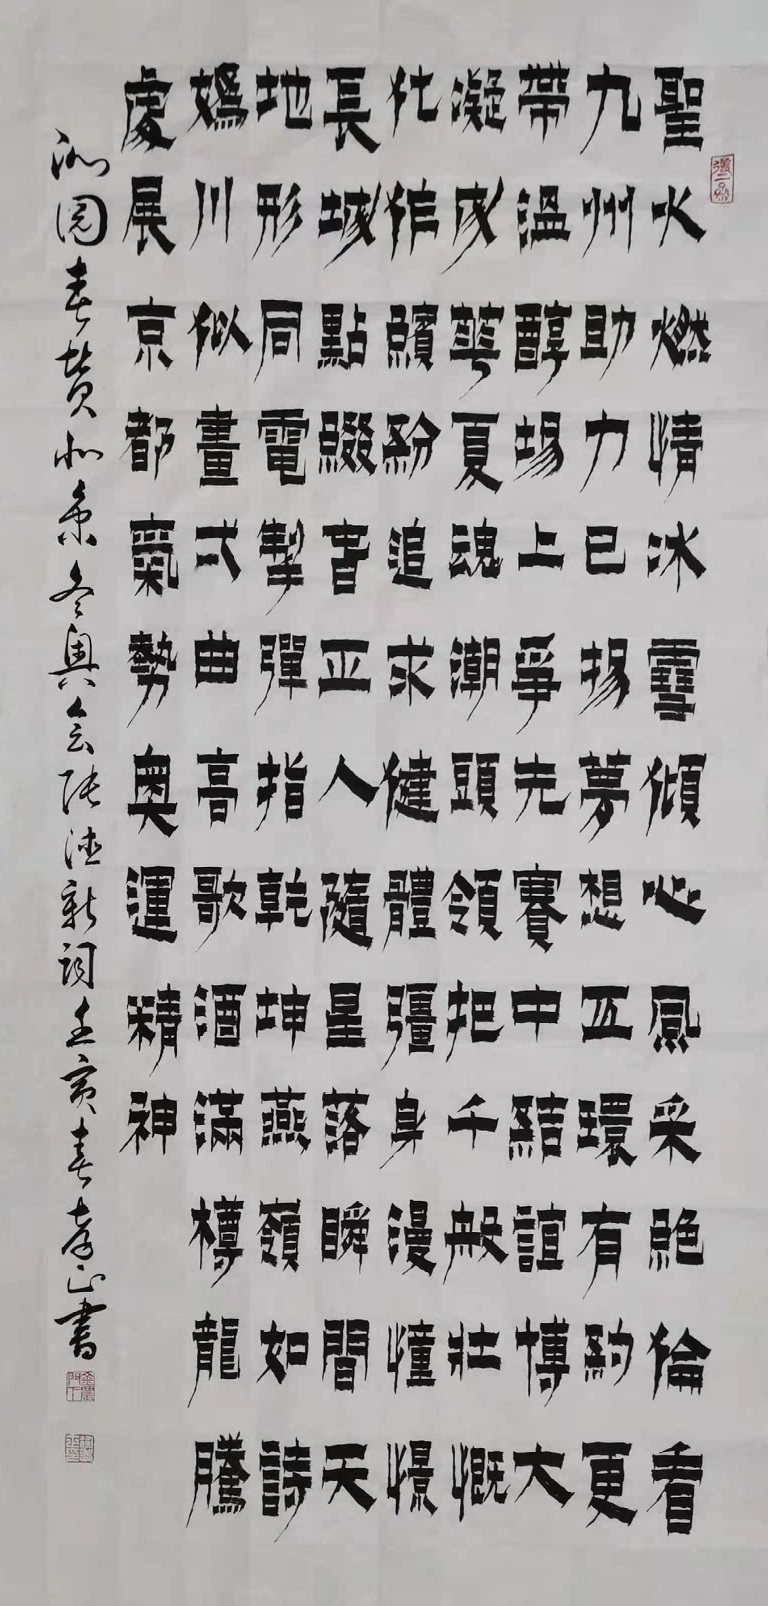 聖火燃情冰雪傾心風采絕倫看
九州助力已揚夢想五環有約更
帶溫醇場上爭先賽中結誼博大
凝成華夏魂潮頭領把千般壯慨
化作繽紛追求健體彊身漫憧憬
長城點綴者正人隨星落瞬間天
地形同電掣彈指乾坤燕嶺如詩
媯川似畫弍曲高歌酒滿樽龍騰
處展京都氣勢奧運精神
沁園春贊北京冬奧会張德新詞壬寅春李正書